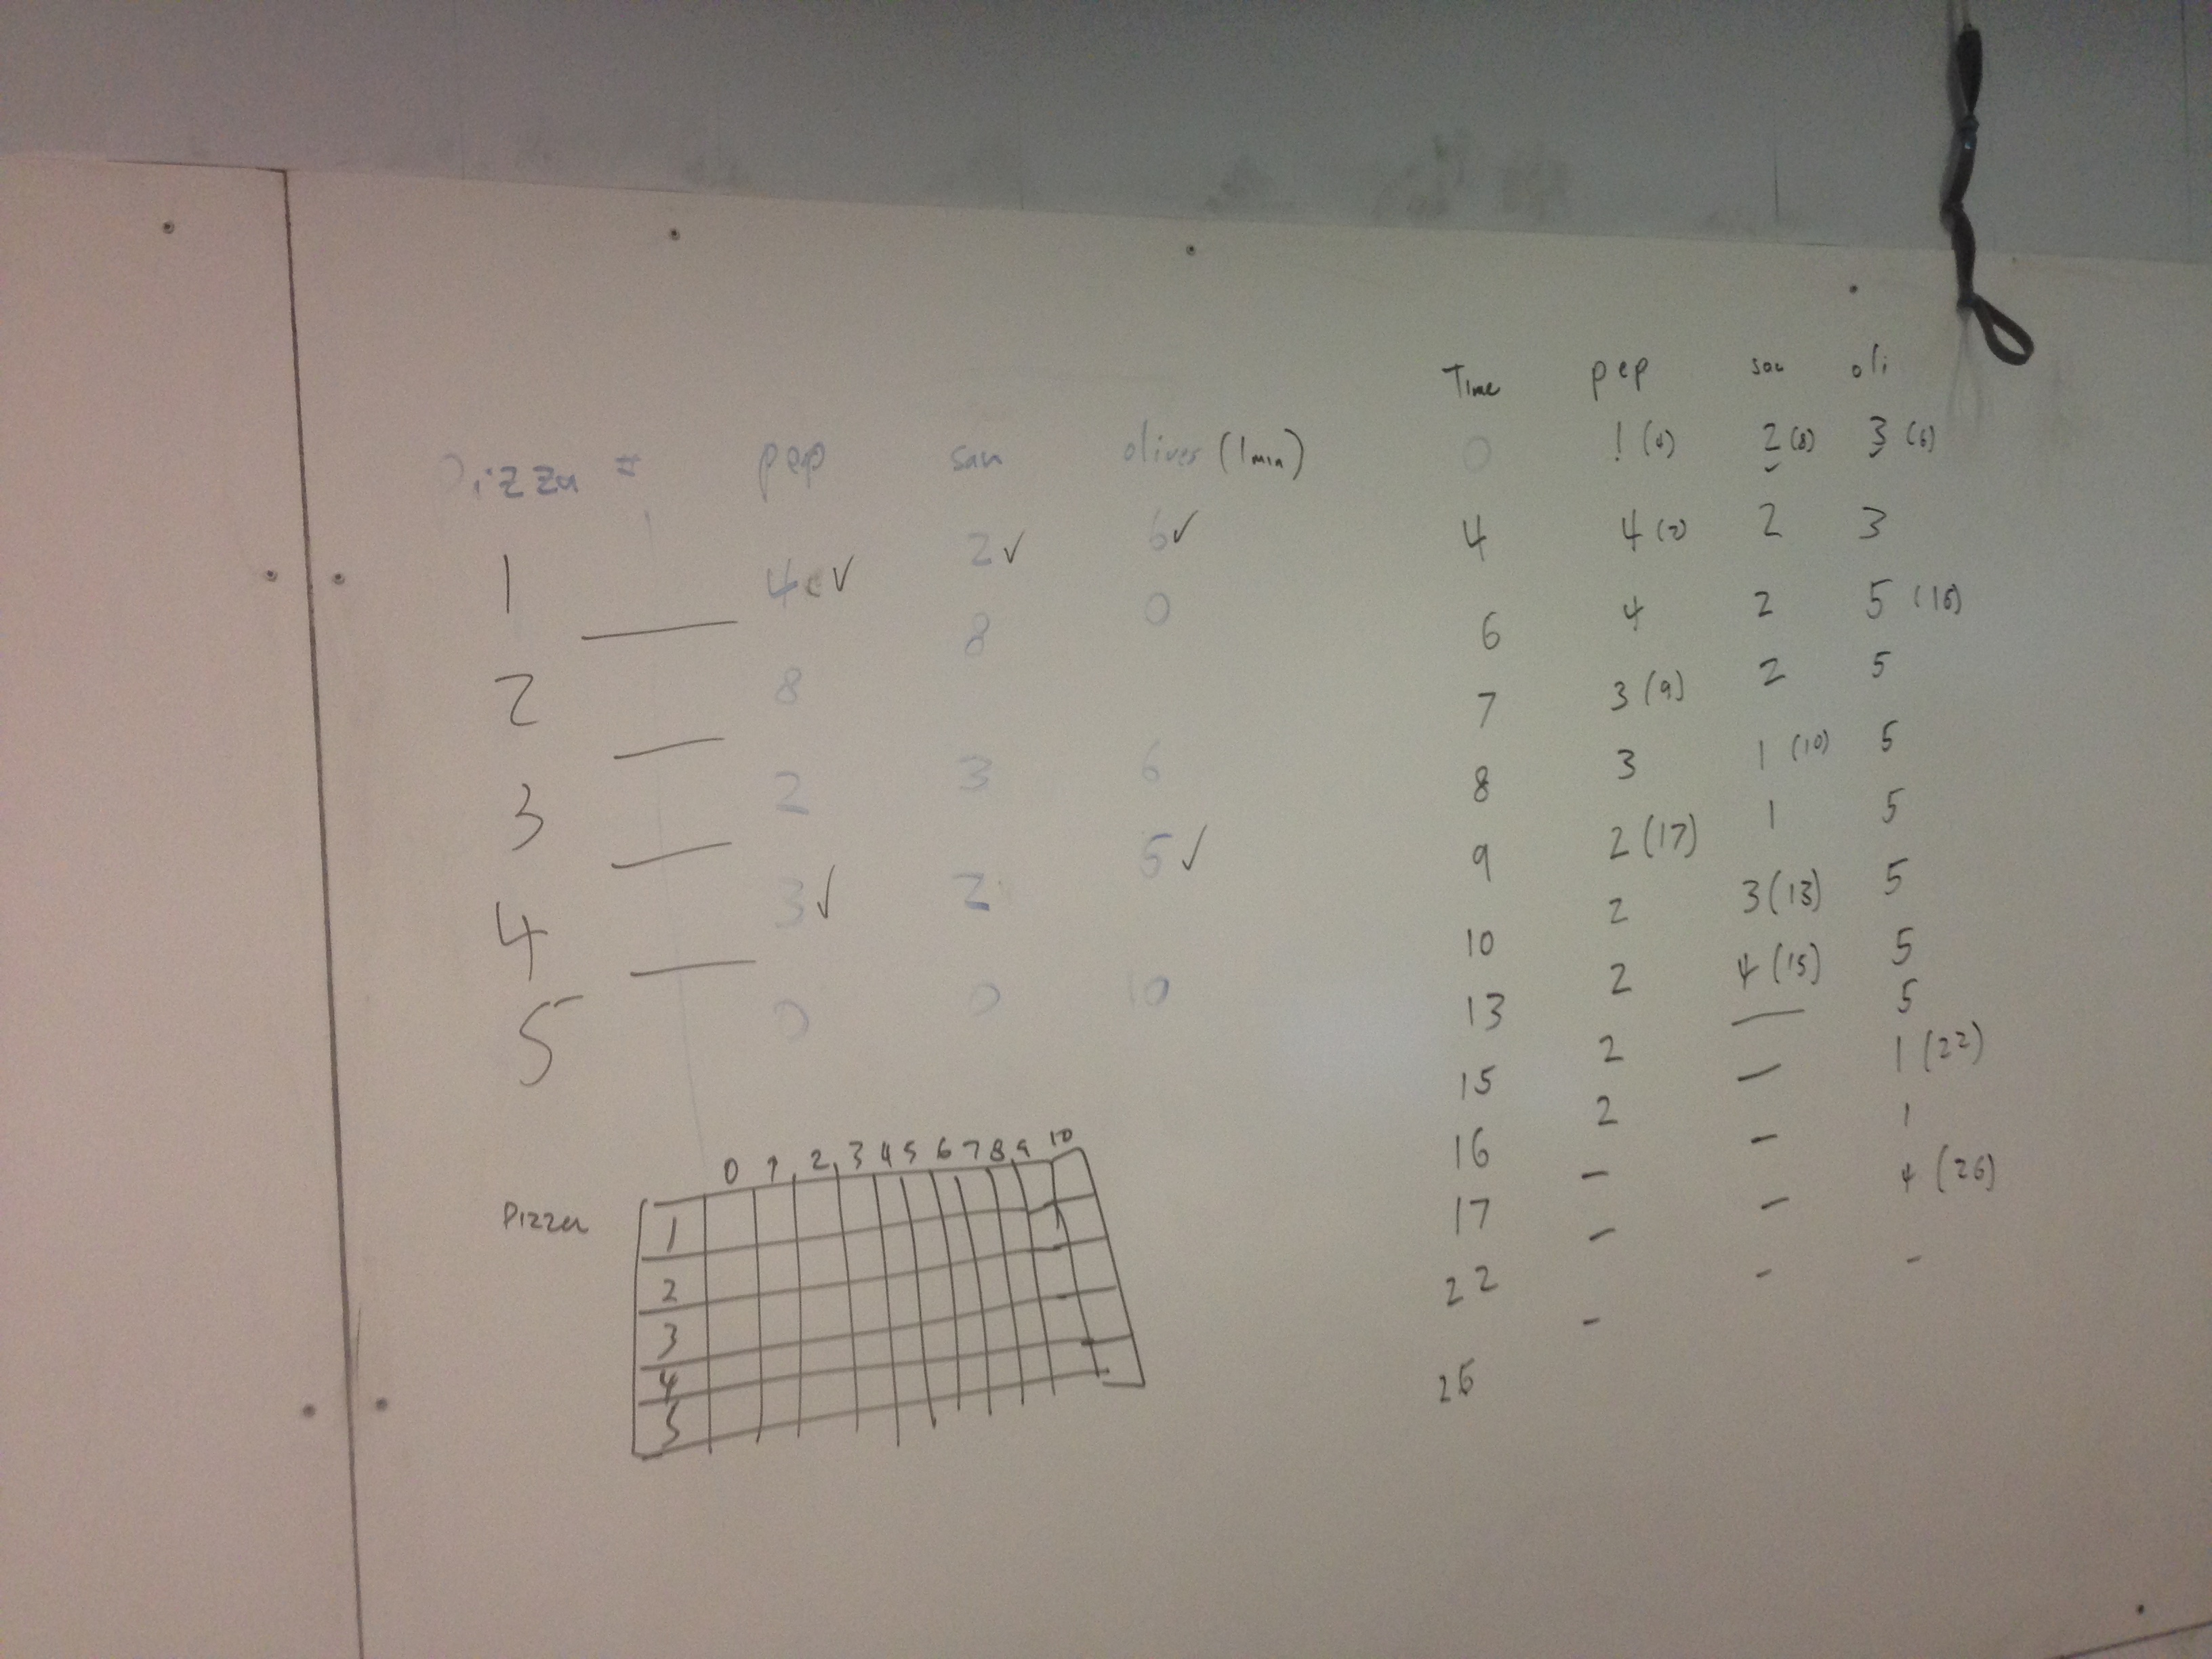 pizza # pep sau olives (1min)
1 4 ✓ 2 ✓ 6 ✓
2 8 8 0
3 2 3 6
4 3 ✓ 2 5 ✓
5 0 0 10
0 1 2 3 4 5 6 7 8 9 10
Pizza 1
2
3
4
5
Time pep sau oli
0 1 (4) 2 (8) 3 (6)
4 4 (7) 2 3
6 4 2 5 (16)
7 3 (9) 2 5
8 3 1 (10) 5
9 2 (17) 1 5
10 2 3 (13) 5
13 2 4 (15) 5
15 2 — 5
16 2 — 1 (22)
17 — — 1
22 — — 4 (26)
26 — — —